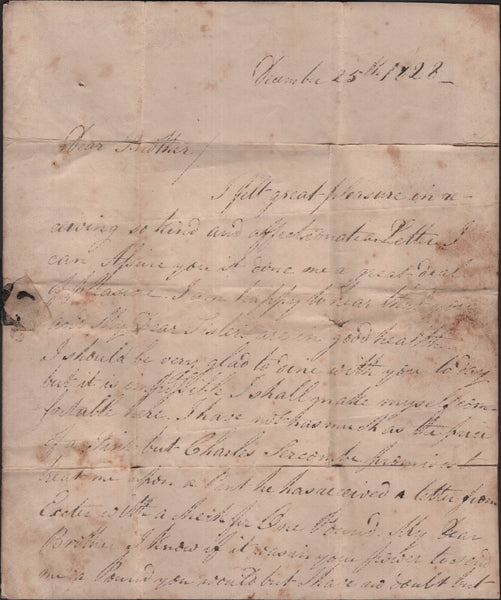 December 25th 1828
Dear Brother/
I felt great pleasure in re-
ceiving so kind and affectionate a Letter I
can Assure you it done me a great deal
of pleasure. I am happy to hear that you
and My Dear Sister are in good health
I should be very glad to dine with you to day
but it is impossible I shall make myself com-
fortable here. I have not has much as the price
of a Pint but Charles Sercombe promises to
treat me upon a Pint he has received a letter from
Exeter with a check for One Pound. My Dear
Brother I know if it was in your power to send
me a Pound you would but I have no doubt but